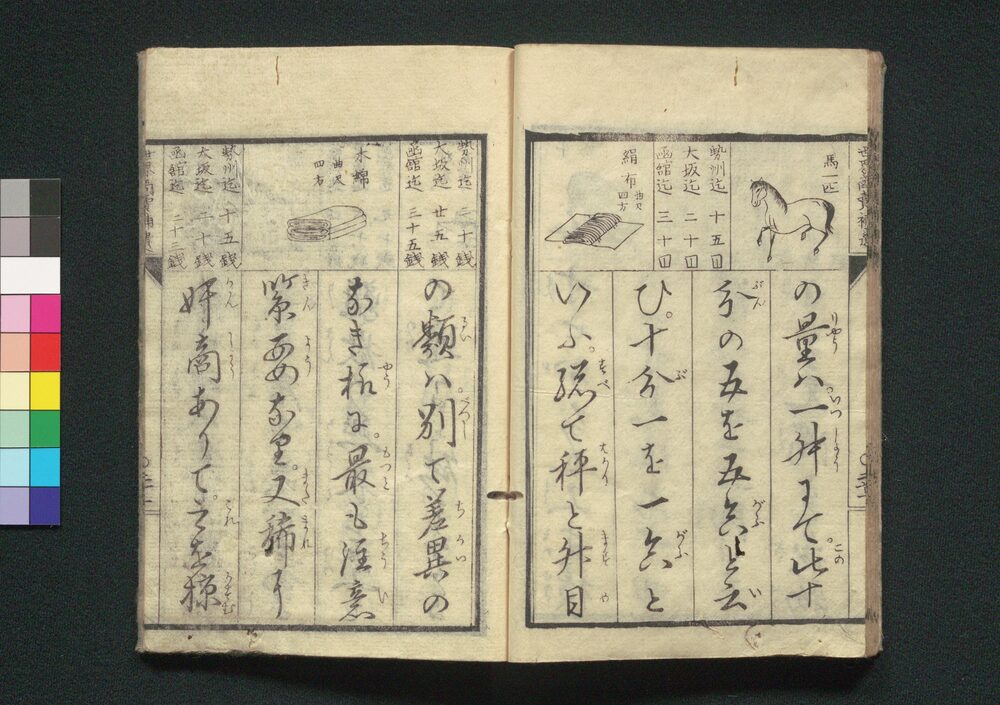 馬一匹
勢州迄 十五円
大坂迄 二十円
函館迄 三十円
絹布 曲尺四方
の量ハ。一舛まで。此十
分の五を五合と云
ひ。十分一を一合と
いふ。総て秤と升目
勢州迄 二十銭
大坂迄 廿五銭
函館迄 三十五銭
木綿 曲尺四方
勢州迄 十五銭
大坂迄 二十銭
函館迄 二十三銭
の類ハ。別て差異の
なき様に。最も注意
緊要なり。又稀に
奸商ありて。之を掠